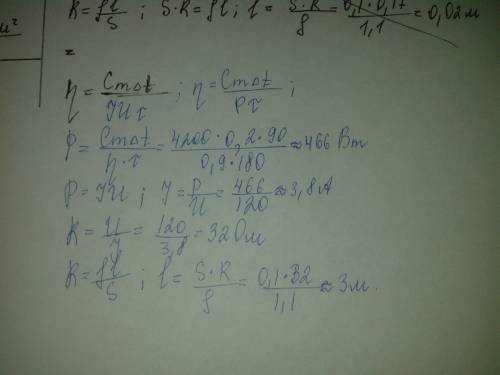 м²
R = ρl/S ; S·R = ρl ; l = S·R/ρ = 0,1·0,17/1,1 = 0,02 м
=
η = Cm∆t/IUτ ; η = Cm∆t/Pτ ;
P = Cm∆t/η·τ = 4200·0,2·90/0,9·180 ≈ 466 Вт
P = IU ; I = P/U = 466/120 ≈ 3,8 А
R = U/I = 120/3,8 = 32 Ом
R = ρl/S ; l = S·R/ρ = 0,1·32/1,1 ≈ 3 м.